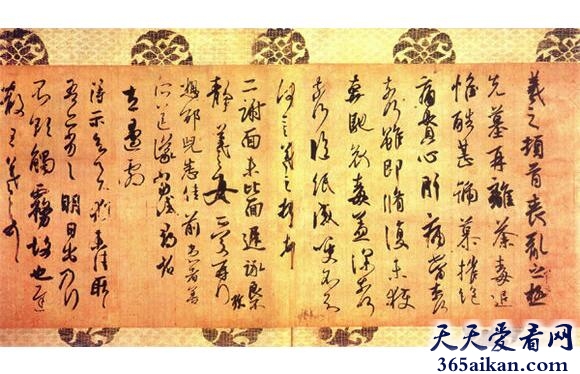 羲之頓首喪亂之極
先墓再離荼毒追
惟酷甚號慕摧絕
痛貫心肝痛當奈何
奈何雖即脩復未獲
奔馳哀毒益深奈何
奈何臨紙感哽不知
何言羲之頓首頓首
二謝面未比面遲詠良
不靜羲之女愛再拜
想邵兒悉佳前患者善
所送議當試尋省
左邊劇
得示知足下猶未佳耿
耿吾亦劣劣明日出乃行
不欲觸霧故也遲
散王羲之頓首
天天爱看网
365aikan.com